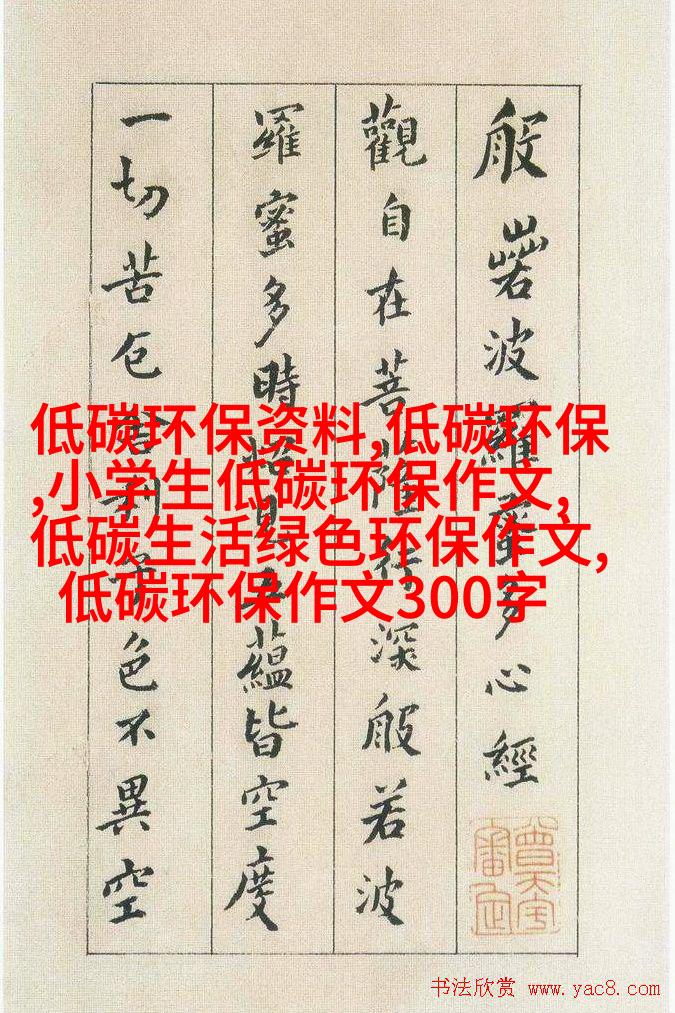 般若波羅蜜多心經
觀自在菩薩行深般若波
羅蜜多時照見五蘊皆空度
一切苦厄舍利子色不異空
低碳环保资料,低碳环保
,小学生低碳环保作文,
低碳生活绿色环保作文,
低碳环保作文300字
书法欣赏 www.yac8.com